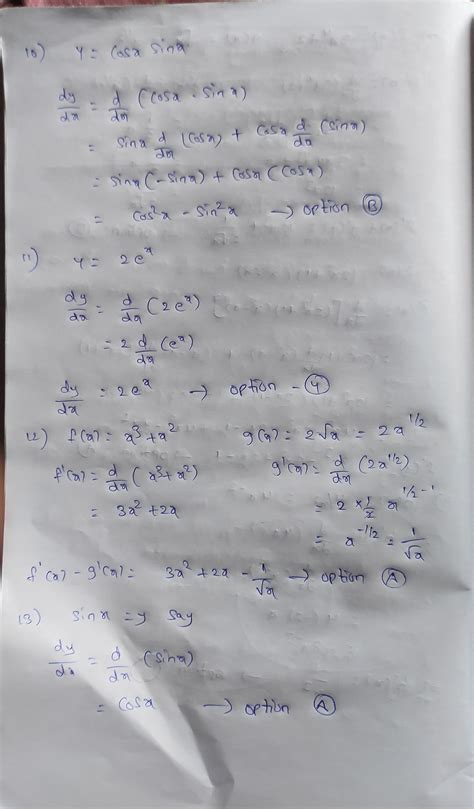 10) y = cosx sinx
dy/dx = d/dx (cosx . sinx)
= sinx d/dx (cosx) + cosx d/dx (sinx)
= sinx (-sinx) + cosx (cosx)
= cos²x - sin²x → option Ⓑ
11) y = 2e^x
dy/dx = d/dx (2e^x)
= 2 d/dx (e^x)
dy/dx = 2e^x → option - ④
12) f(x) = x³+x² g(x) = 2√x = 2x^1/2
f'(x) = d/dx (x³+x²) g'(x) = d/dx (2x^1/2)
= 3x²+2x = 2 × 1/2 x^1/2-1
= x^-1/2 = 1/√x
f'(x) - g'(x) = 3x²+2x - 1/√x → option Ⓐ
13) sinx = y say
dy/dx = d/dx (sinx)
= cosx → option Ⓐ